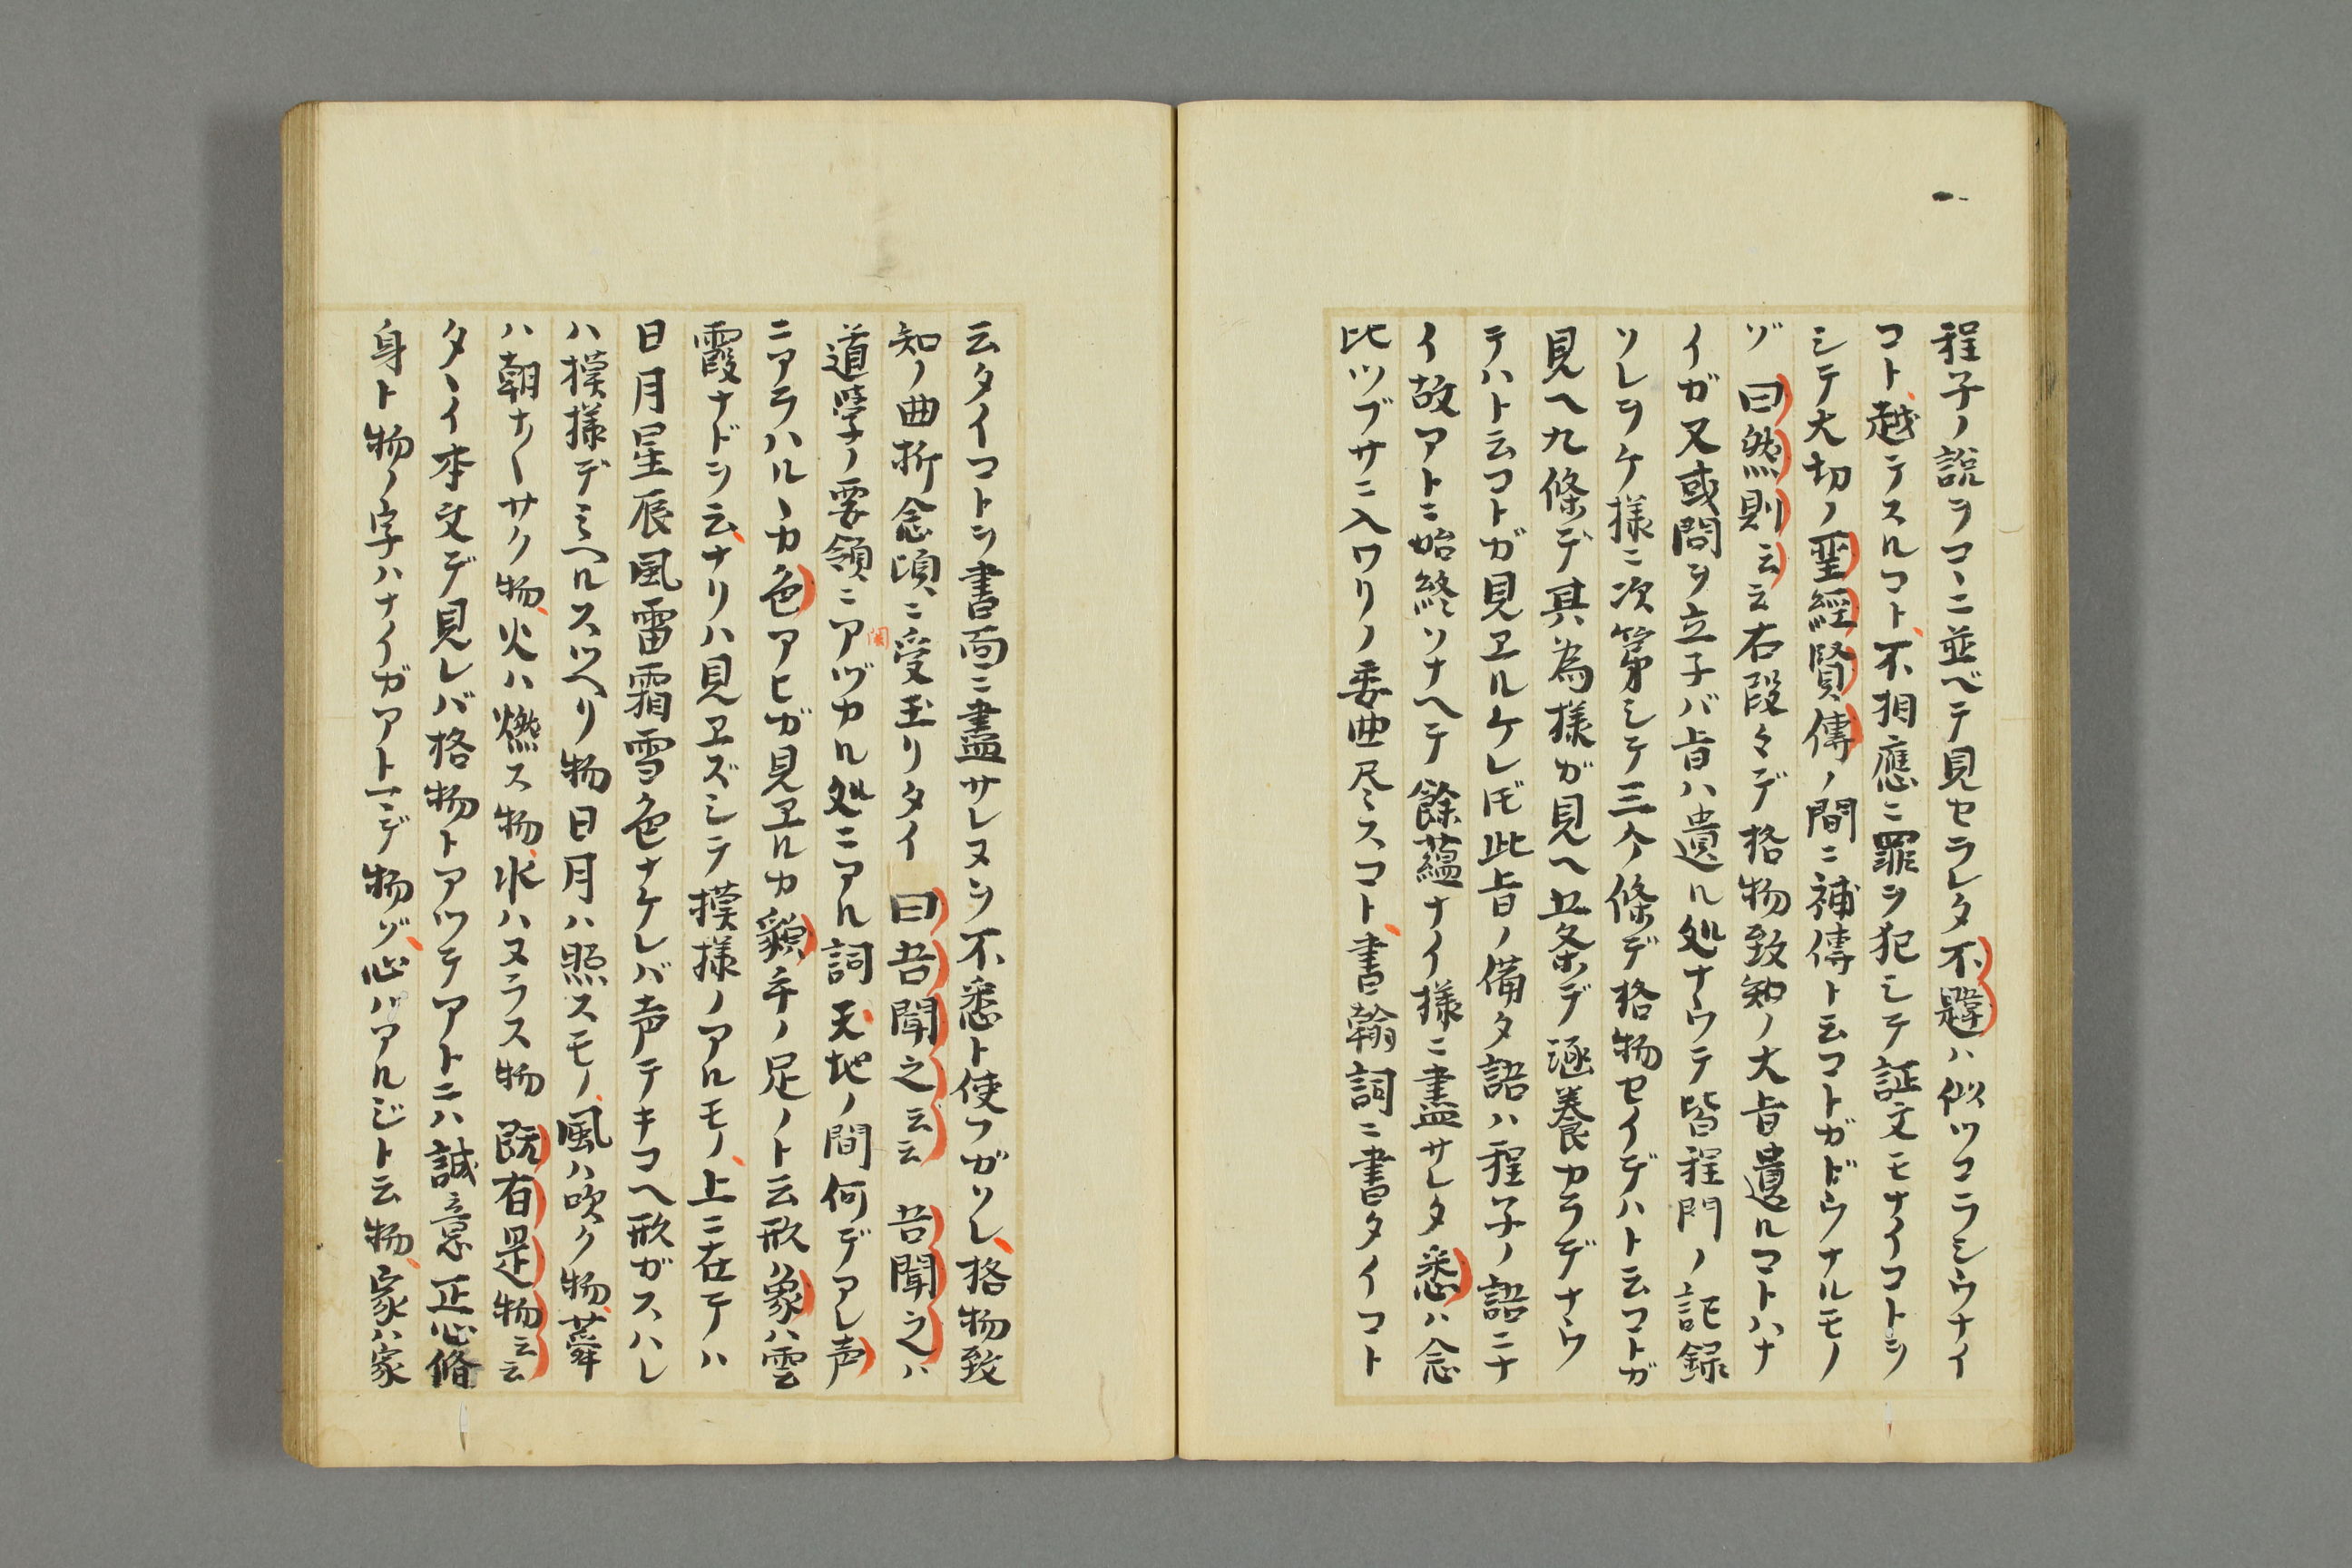 程子ノ説ヲコヽニ並ベテ見セラレタ不韙ハ似ツコラシウナイ
コト、越テスルコト、不相應ニ罪ヲ犯シテ証文モナイコトヲ
シテ大切ノ聖經賢傳ノ間ニ補傳ト云コトガドウナルモノ
ゾ 曰然則云云右段々デ格物致知ノ大旨遺ルコトハナ
イガ又或問ヲ立子バ旨ハ遺ル処ナウテ皆程門ノ記録
ソレヲケ様ニ次第シテ三个條デ格物セイデハト云コトガ
見ヘ九條デ其為様ガ見ヘ五条デ涵養カラデナウ
テハト云コトガ見ヱルケレ𪜈此旨ノ備タ語ハ程子ノ語ニナ
イ故アトニ始終ソナヘテ餘蘊ナイ様ニ盡サレタ悉ハ念
比ツブサニ入ワリノ委曲尽スコト、書翰詞ニ書タイコト
云タイコトヲ書面ニ盡サレヌヲ不悉ト使フガソレ、格物致
知ノ曲折念頃ニ受玉リタイ 曰吾聞之云云 吾聞之ハ
道學ノ要領ニアヅカル処ニアル詞天地ノ間何デアレ声
ニアラハルヽカ色アヒガ見ヱルカ貌手ノ足ノト云形ハ象ハ雲
霞ナドヲ云、ナリハ見ヱズシテ摸様ノアルモノ、上ニ在テハ
日月星辰風雷霜雪色ナケレバ声テキコヘ形ガスハレ
ハ摸様デミヘルスツヘリ物日月ハ照スモノ、風ハ吹ク物、蕣
ハ朝ナ〱サク物、火ハ燃ス物、水ハヌラス物 既有是物云云
タヽイ本文デ見レバ格物トアツテアトニハ誠意正心脩
身ト物ノ字ハナイガアト一デ物ゾ、心ハアルジト云物、家ハ家